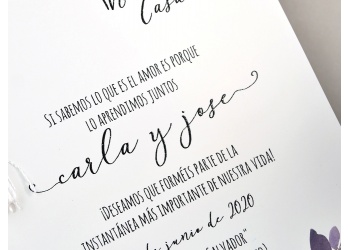 Casa
SI SABEMOS LO QUE ES EL AMOR ES PORQUE
LO APRENDIMOS JUNTOS
carla y jose
¡DESEAMOS QUE FORMÉIS PARTE DE LA
INSTANTÁNEA MÁS IMPORTANTE DE NUESTRA VIDA!
de junio de 2020
SALVADOR"